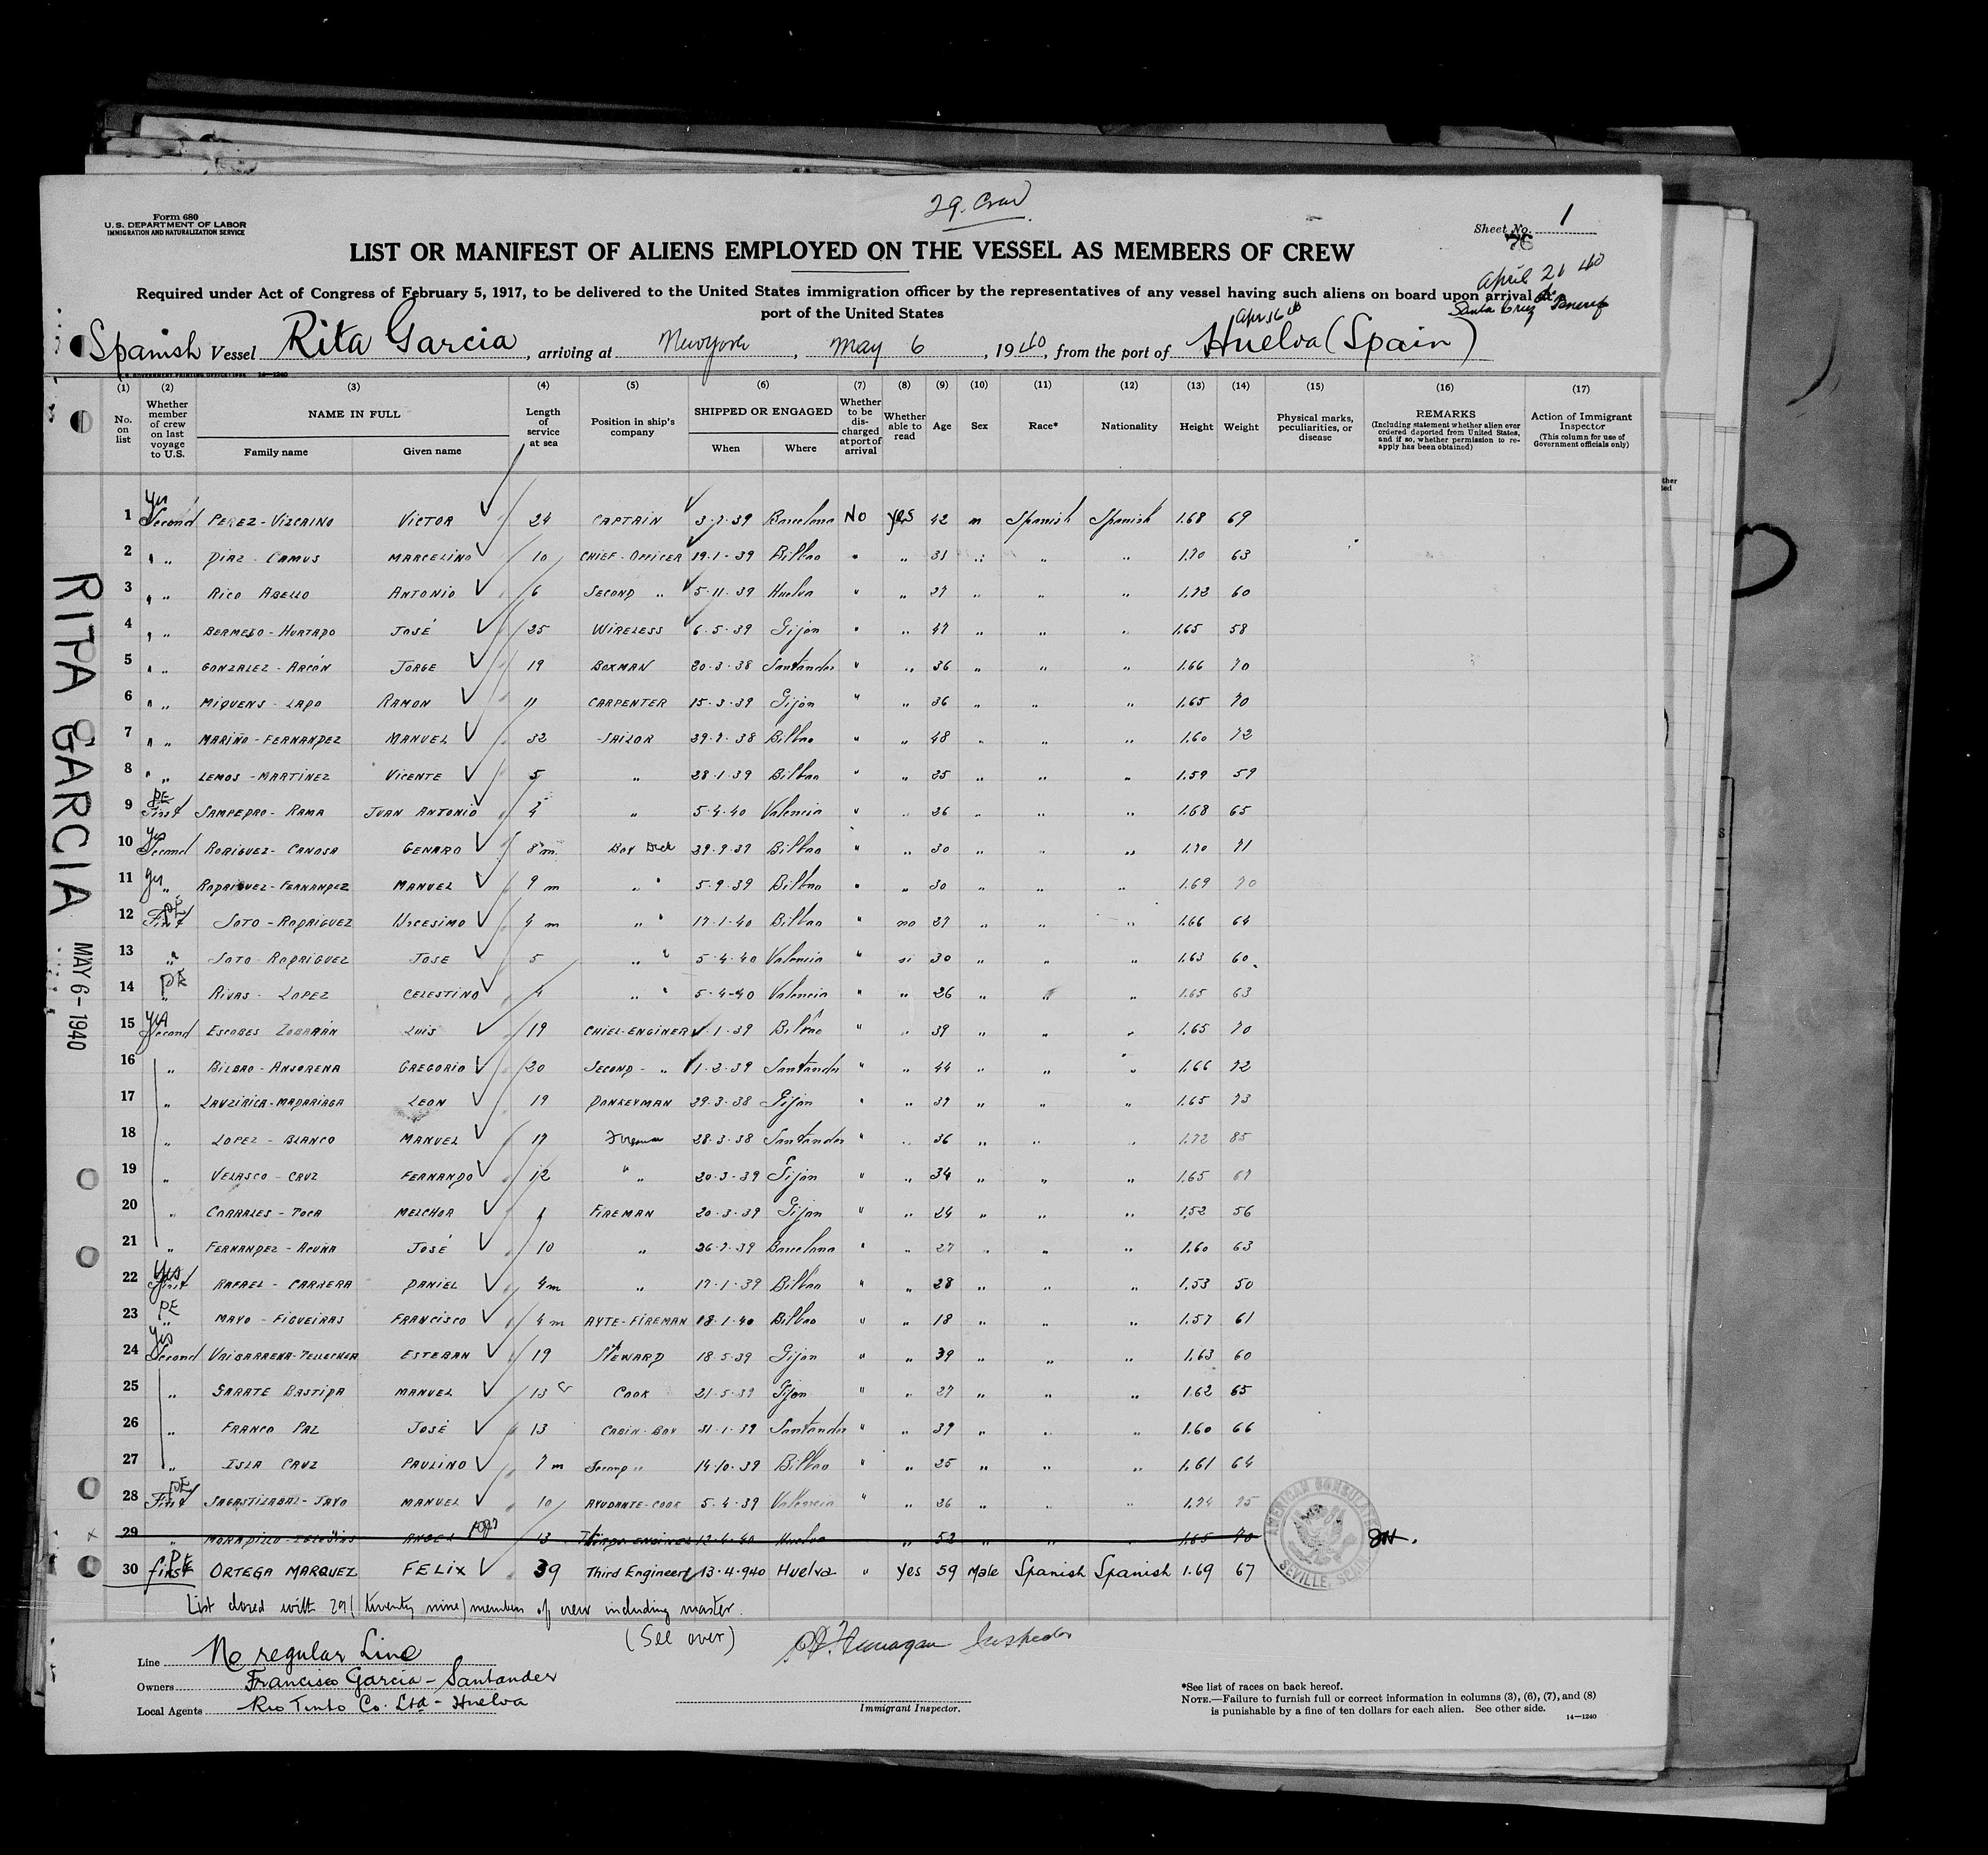 29. Crew
Form 680
U.S. DEPARTMENT OF LABOR
IMMIGRATION AND NATURALIZATION SERVICE
Sheet No. 1
76
LIST OR MANIFEST OF ALIENS EMPLOYED ON THE VESSEL AS MEMBERS OF CREW
April 21 40
Santa Cruz de Tenerife
Required under Act of Congress of February 5, 1917, to be delivered to the United States immigration officer by the representatives of any vessel having such aliens on board upon arrival at a
port of the United States
Apr 16th
Spanish Vessel Rita Garcia, arriving at New York, May 6, 1940, from the port of Huelva (Spain)
(1) (2) (3) (4) (5) (6) (7) (8) (9) (10) (11) (12) (13) (14) (15) (16) (17)
No. on list
Whether member of crew on last voyage to U.S.
NAME IN FULL
Family name Given name
Length of service at sea
Position in ship's company
SHIPPED OR ENGAGED
When Where
Whether to be discharged at port of arrival
Whether able to read
Age Sex Race* Nationality Height Weight
Physical marks, peculiarities, or disease
REMARKS
(Including statement whether alien ever ordered deported from United States, and if so, whether permission to reapply has been obtained)
Action of Immigrant Inspector
(This column for use of Government officials only)
1 Yes Second PEREZ-VIZCAINO VICTOR 24 CAPTAIN 3-7-39 Barcelona No Yes 42 m Spanish Spanish 1.68 69
2 " " DIAZ CAMUS MARCELINO 10 CHIEF-OFFICER 19-1-39 Bilbao " " 31 " " " 1.70 63
3 " " RICO ABELLO ANTONIO 6 SECOND " 5-11-39 Huelva " " 27 " " " 1.72 60
4 " " BERMEJO-HURTADO JOSÉ 25 WIRELESS 6-5-39 Gijon " " 47 " " " 1.65 58
5 " " GONZALEZ-ARCÓN JORGE 19 BOXMAN 20-3-38 Santander " " 36 " " " 1.66 70
6 " " MIQUENS-LADO RAMON 11 CARPENTER 15-3-39 Gijon " " 36 " " " 1.65 70
7 " " MARIÑO-FERNANDEZ MANUEL 32 SAILOR 29-7-38 Bilbao " " 48 " " " 1.60 72
8 " " LEMOS-MARTINEZ VICENTE 5 " 28-1-39 Bilbao " " 25 " " " 1.59 59
9 PE First SAMPEDRO-RAMA JUAN ANTONIO 4 " 5-4-40 Valencia " " 26 " " " 1.68 65
10 Yes Second RODRIGUEZ-CANOSA GENARO 8 m. Boy Deck 29-9-39 Bilbao " " 30 " " " 1.70 71
11 Yes " RODRIGUEZ-FERNANDEZ MANUEL 9 m " " 5-9-39 Bilbao " " 30 " " " 1.69 70
12 PE First SOTO-RODRIGUEZ 4 m " " 17-1-40 Bilbao " no 27 " " " 1.66 64
13 " SOTO RODRIGUEZ JOSE 5 " " 5-4-40 Valencia " si 30 " " " 1.63 60
14 PE " RIVAS-LOPEZ CELESTINO 4 " " 5-4-40 Valencia " " 26 " " " 1.65 63
15 Yes Second ESCOBES LUIS 19 CHIEF-ENGINER 1-39 Bilbao " " 39 " " " 1.65 70
16 " BILBAO-ANSORENA GREGORIO 20 SECOND- " 1-2-39 Santander " " 44 " " " 1.66 72
17 " LAUZIRICA-MADARIAGA LEON 19 DONKEYMAN 29-3-38 Gijon " " 39 " " " 1.65 73
18 " LOPEZ-BLANCO MANUEL 17 Fireman 28-3-38 Santander " " 36 " " " 1.72 85
19 " VELASCO-CRUZ FERNANDO 12 " " 20-3-39 Gijon " " 34 " " " 1.65 67
20 " CORRALES-TOCA MELCHOR 1 FIREMAN 20-3-39 Gijon " " 24 " " " 1.52 56
21 " FERNANDEZ-ACUÑA JOSÉ 10 " 26-7-39 Barcelona " " 27 " " " 1.60 63
22 Yes First RAFAEL-CARRERA DANIEL 4m " 17-1-39 Bilbao " " 28 " " " 1.53 50
23 PE " MAYO-FIGUEIRAS FRANCISCO 4 m AYTE-FIREMAN 18-1-40 Bilbao " " 18 " " " 1.57 61
24 Yes Second ESTEBAN 19 STEWARD 18-5-39 Gijon " " 39 " " " 1.63 60
25 " SARATE BASTIDA MANUEL 13 COOK 21-5-39 Gijon " " 27 " " " 1.62 65
26 " FRANCO PAZ JOSÉ 13 CABIN-BOY 31-1-39 Santander " " 39 " " " 1.60 66
27 " ISLA CRUZ PAULINO 7 m Second " 14-10-39 Bilbao " " 25 " " " 1.61 64
28 PE First SAGASTIZABAL-JAYO MANUEL 10 AYUDANTE-COOK 5-4-39 Valencia " " 36 " " " 1.74 75
29 " MORADILLO-IGLESIAS ANGEL 13 THIRD ENGINEER 12-4-40 Huelva " 52 " " 1.65 70
30 PE first ORTEGA MARQUEZ FELIX 39 Third Engineer 13-4-940 Huelva " Yes 59 Male Spanish Spanish 1.69 67
List closed with 29 (twenty nine) members of crew including master.
(See over)
AMERICAN CONSULATE
SEVILLE, SPAIN
Line No regular Line
Owners Francisco Garcia - Santander
Local Agents Rio Tinto Co. Ltd - Huelva
Inspector
Immigrant Inspector.
*See list of races on back hereof.
NOTE.—Failure to furnish full or correct information in columns (3), (6), (7), and (8)
is punishable by a fine of ten dollars for each alien. See other side.
14—1240
RITA GARCIA MAY 6-1940